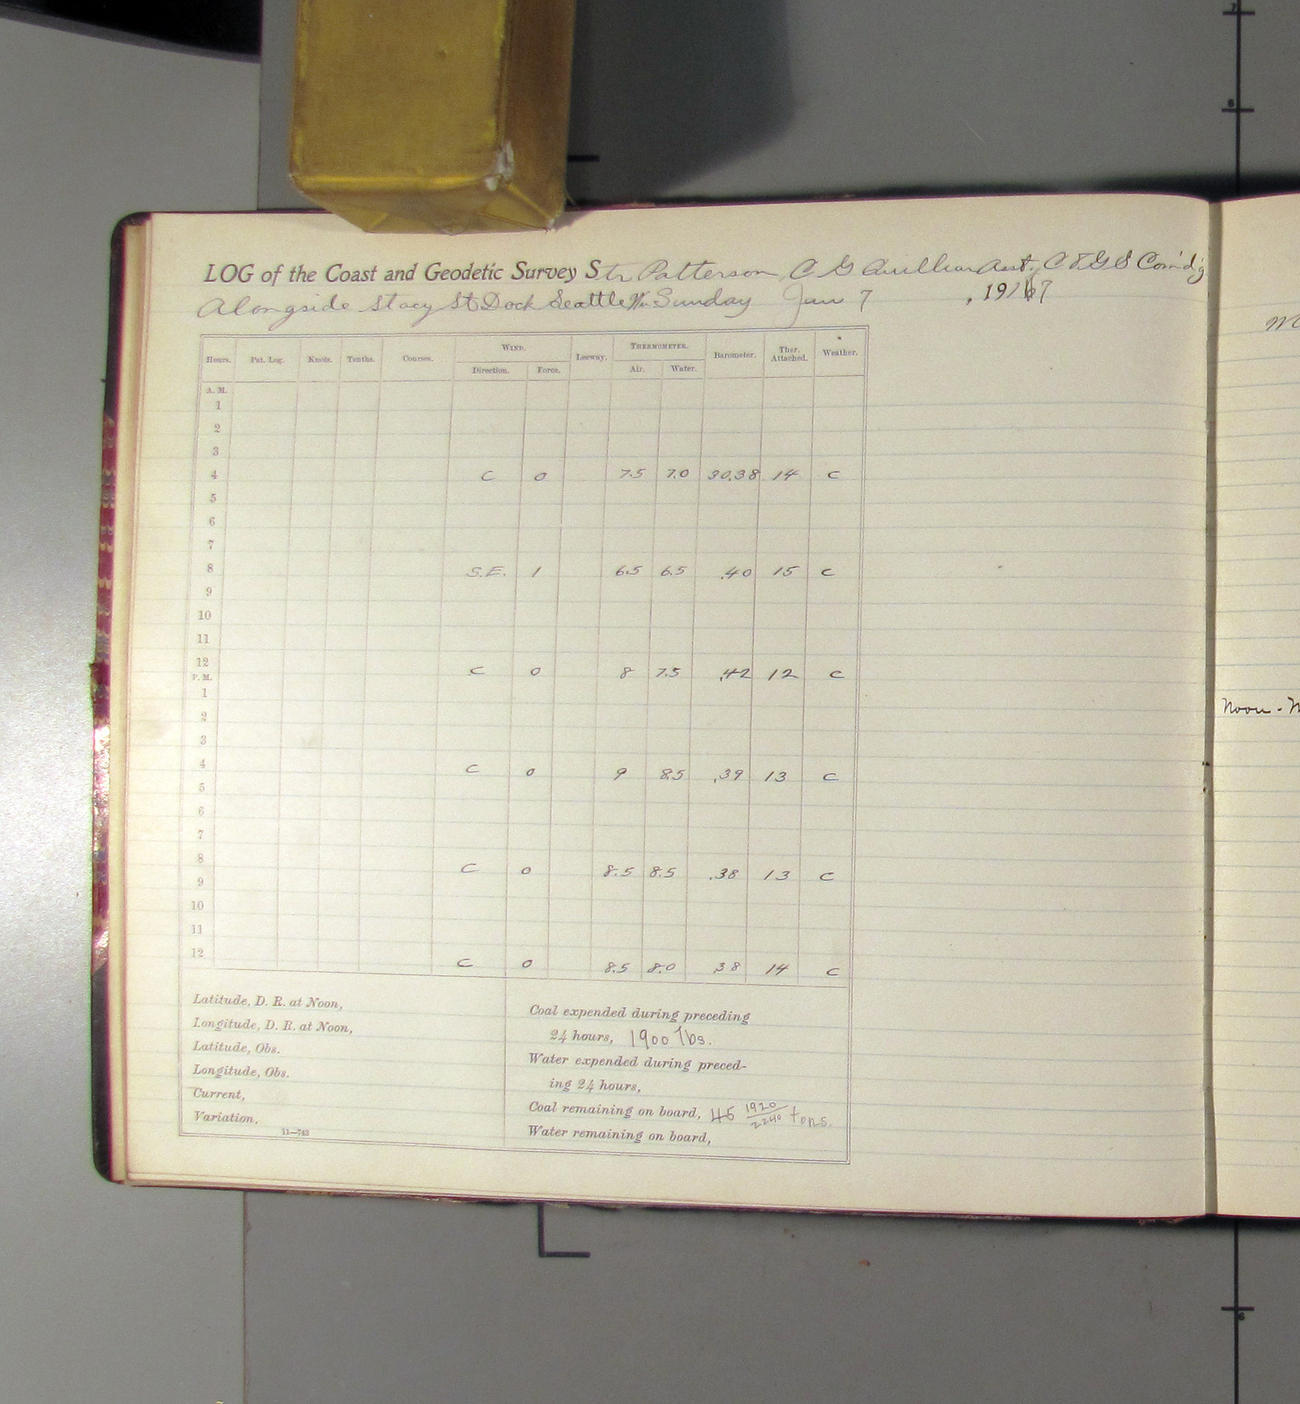 LOG of the Coast and Geodetic Survey Str. Patterson, C G Quillian Asst. C & G S Com'd'g
Alongside Stacy St Dock Seattle Wn Sunday Jan 7, 1917
Hours. Pat. Log. Knots. Tenths. Courses. WIND. Leeway. THERMOMETER. Barometer. Ther. Attached. Weather.
Direction. Force. Air. Water.
A. M.
1
2
3
4 C 0 7.5 7.0 30.38 14 c
5
6
7
8 S.E. 1 6.5 6.5 .40 15 c
9
10
11
12 C 0 8 7.5 .42 12 c
P. M.
1
2
3
4 C 0 9 8.5 .39 13 c
5
6
7
8 C 0 8.5 8.5 .38 13 c
9
10
11
12 C 0 8.5 8.0 38 14 c
Latitude, D. R. at Noon,
Longitude, D. R. at Noon,
Latitude, Obs.
Longitude, Obs.
Current,
Variation,
11—743
Coal expended during preceding
24 hours, 1900 lbs.
Water expended during preced-
ing 24 hours,
Coal remaining on board, 45 1920/2240 tons.
Water remaining on board,
Noon -
7
8
6